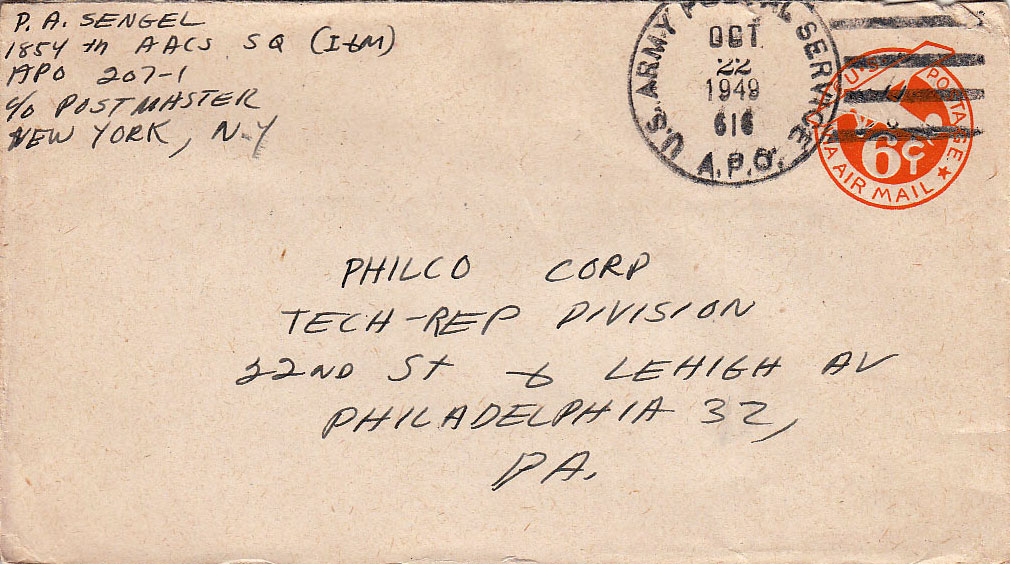 P. A. SENGEL
1854 th AACS SQ (I&M)
APO 207-1
c/o POSTMASTER
NEW YORK, N.Y
U.S. ARMY POSTAL SERVICE
OCT
22
1949
616
A.P.O.
U.S. POSTAGE
6¢
VIA AIR MAIL
PHILCO CORP
TECH-REP DIVISION
22ND St & LEHIGH AV
PHILADELPHIA 32,
PA.